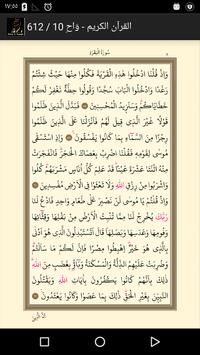 ١٧:٥٥
القرآن الكريم - وَاح 10 / 612
سُورَةُ الْبَقَرَةِ
وَإِذْ قُلْنَا ادْخُلُوا هَٰذِهِ الْقَرْيَةَ فَكُلُوا مِنْهَا حَيْثُ شِئْتُمْ
رَغَدًا وَادْخُلُوا الْبَابَ سُجَّدًا وَقُولُوا حِطَّةٌ نَغْفِرْ لَكُمْ
خَطَايَاكُمْ وَسَنَزِيدُ الْمُحْسِنِينَ فَبَدَّلَ الَّذِينَ ظَلَمُوا
قَوْلًا غَيْرَ الَّذِي قِيلَ لَهُمْ فَأَنْزَلْنَا عَلَى الَّذِينَ ظَلَمُوا
رِجْزًا مِنَ السَّمَاءِ بِمَا كَانُوا يَفْسُقُونَ وَإِذِ اسْتَسْقَىٰ
مُوسَىٰ لِقَوْمِهِ فَقُلْنَا اضْرِبْ بِعَصَاكَ الْحَجَرَ فَانْفَجَرَتْ
مِنْهُ اثْنَتَا عَشْرَةَ عَيْنًا قَدْ عَلِمَ كُلُّ أُنَاسٍ مَشْرَبَهُمْ كُلُوا
وَاشْرَبُوا مِنْ رِزْقِ اللَّهِ وَلَا تَعْثَوْا فِي الْأَرْضِ مُفْسِدِينَ
وَإِذْ قُلْتُمْ يَا مُوسَىٰ لَنْ نَصْبِرَ عَلَىٰ طَعَامٍ وَاحِدٍ فَادْعُ لَنَا
رَبَّكَ يُخْرِجْ لَنَا مِمَّا تُنْبِتُ الْأَرْضُ مِنْ بَقْلِهَا وَقِثَّائِهَا
وَفُومِهَا وَعَدَسِهَا وَبَصَلِهَا قَالَ أَتَسْتَبْدِلُونَ الَّذِي هُوَ أَدْنَىٰ
بِالَّذِي هُوَ خَيْرٌ اهْبِطُوا مِصْرًا فَإِنَّ لَكُمْ مَا سَأَلْتُمْ
وَضُرِبَتْ عَلَيْهِمُ الذِّلَّةُ وَالْمَسْكَنَةُ وَبَاءُوا بِغَضَبٍ مِنَ اللَّهِ
ذَٰلِكَ بِأَنَّهُمْ كَانُوا يَكْفُرُونَ بِآيَاتِ اللَّهِ وَيَقْتُلُونَ
النَّبِيِّينَ بِغَيْرِ الْحَقِّ ذَٰلِكَ بِمَا عَصَوْا وَكَانُوا يَعْتَدُونَ
إِنَّ الَّذِينَ